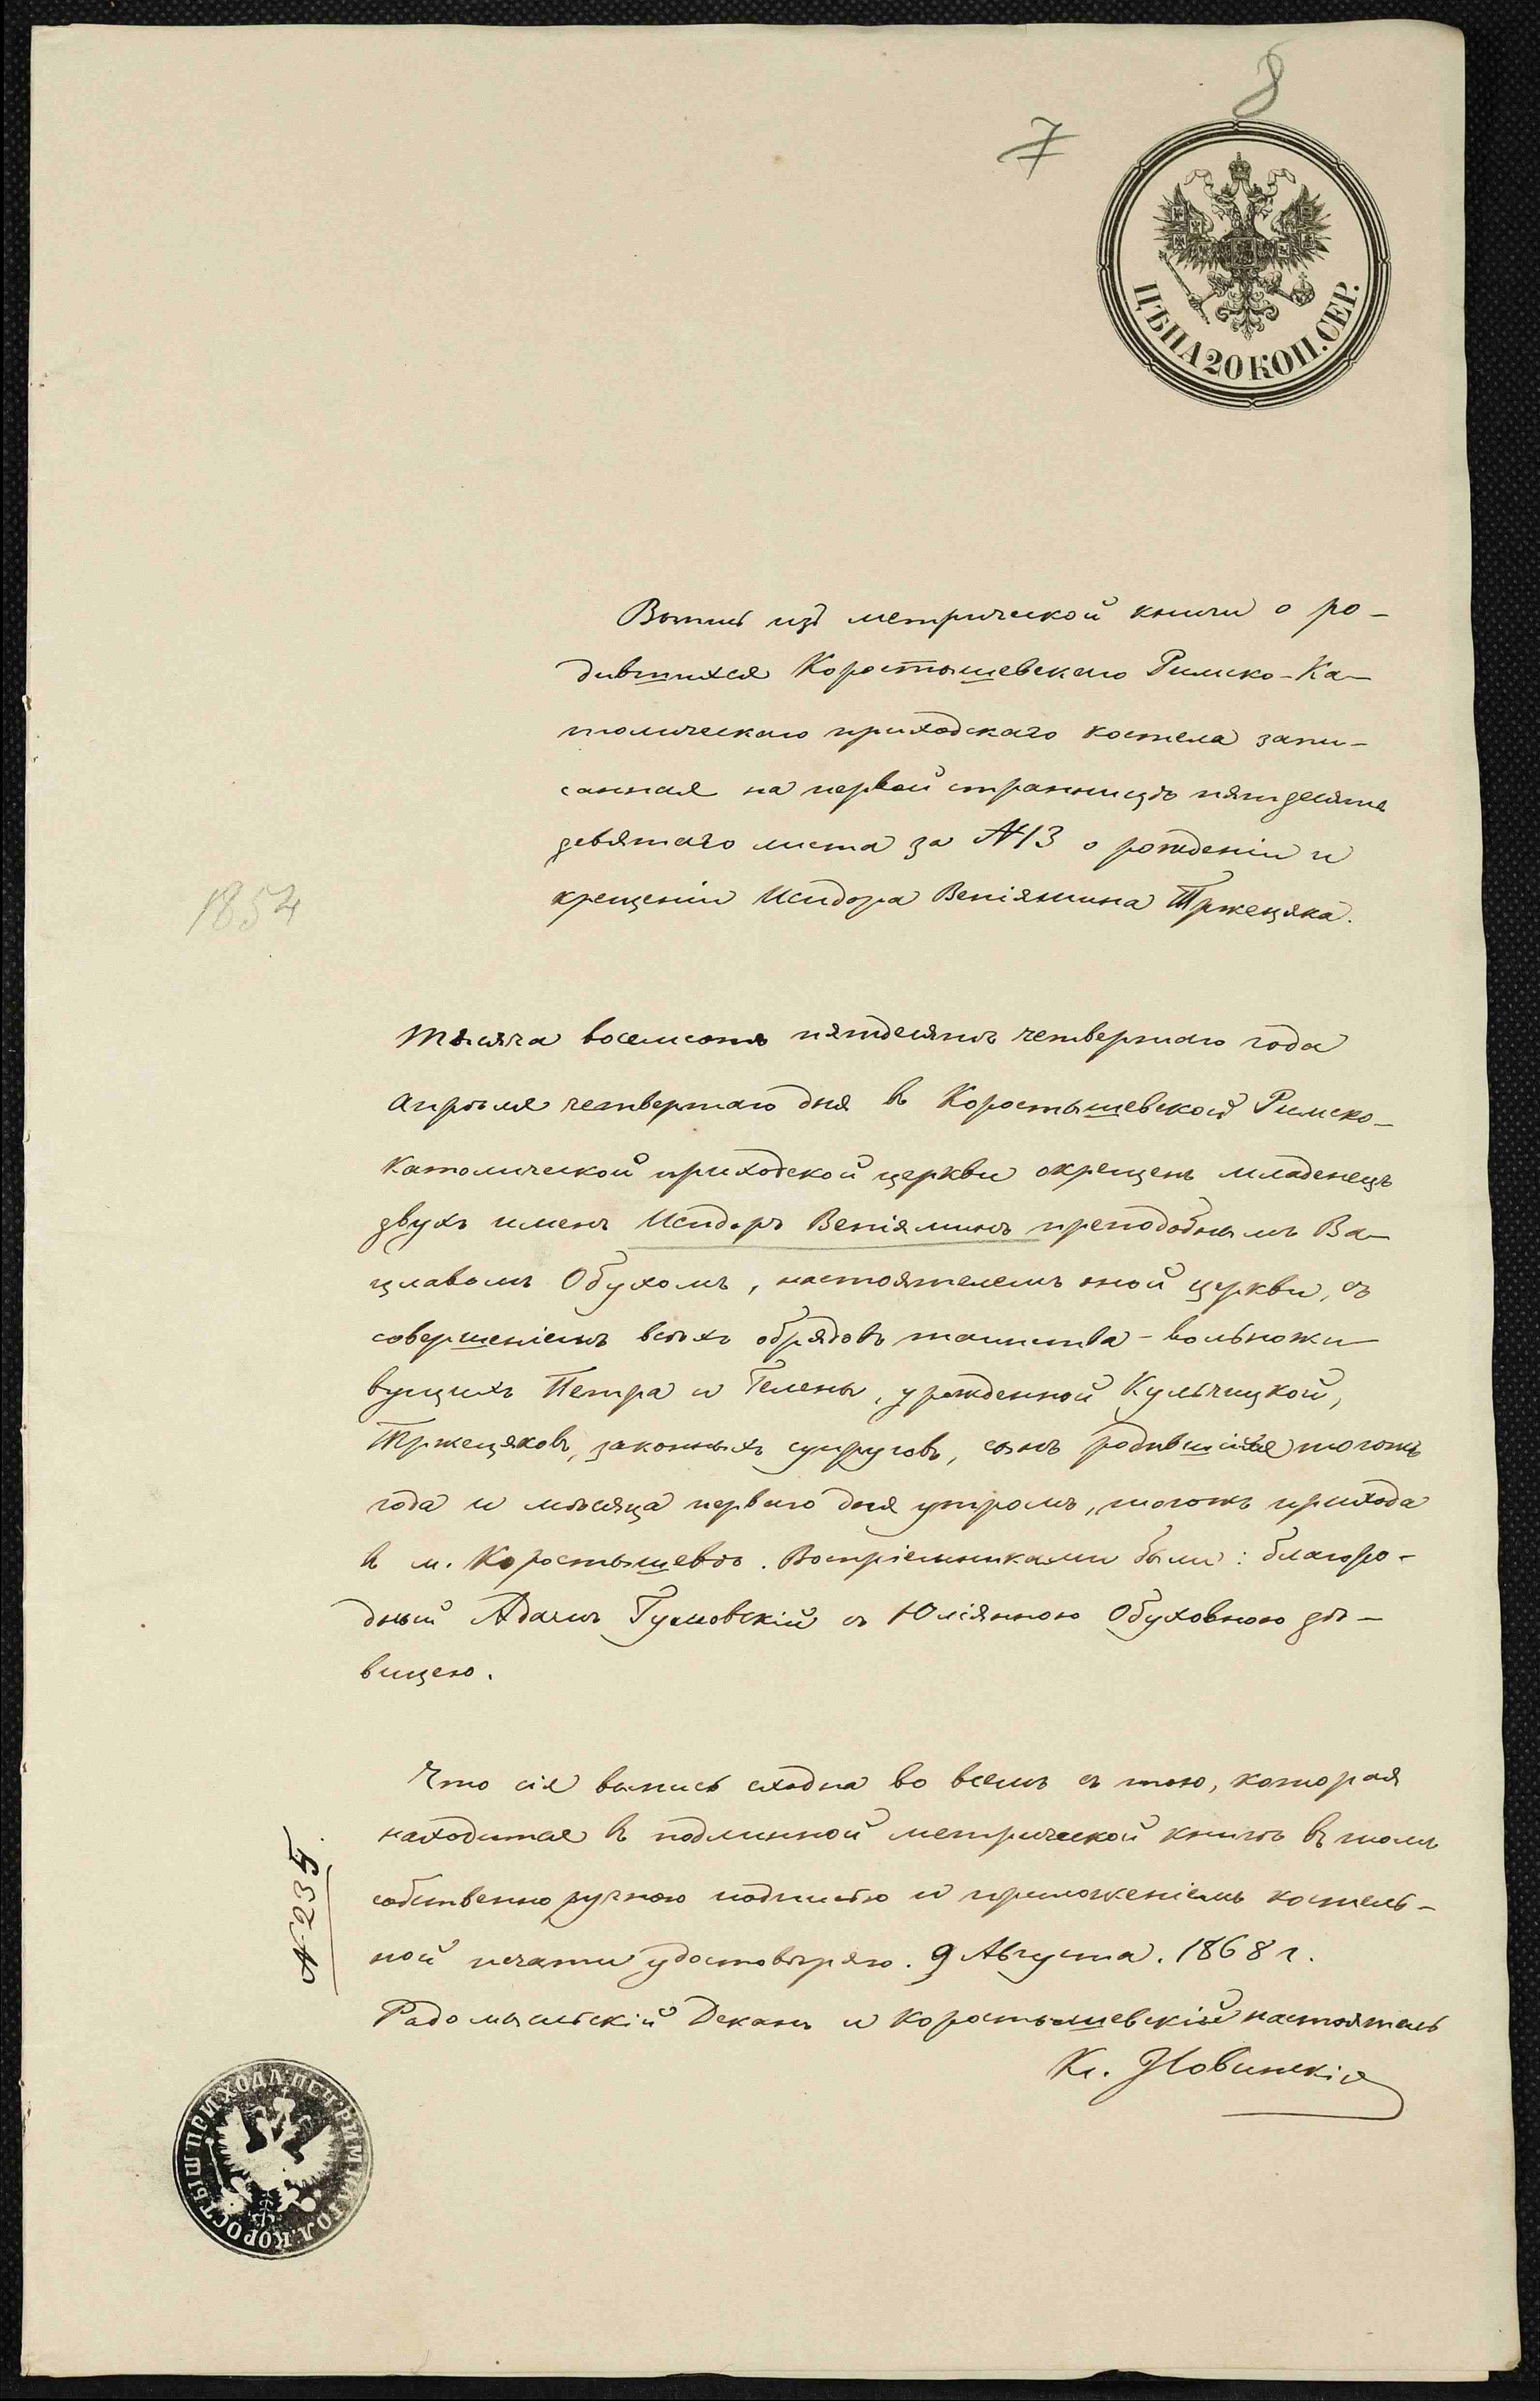 8
7
ЦѢНА 20 КОП. СЕР.
Выпись изъ метрической книги о ро-
дившихся Коростышевскаго Римско-Ка-
толическаго приходскаго костела запи-
санная на первой странницѣ пятдесять
девятаго листа за №13 о рожденіи и
крещеніи Исидора Веніямина Тржецяка.
1854
Тысяча восемсотъ пятдесятъ четвертаго года
Апрѣля четвертаго дня въ Коростышевской Римско-
Католической приходской церкви окрещенъ младенецъ
двухъ именъ Исидоръ Веніяминъ преподобнымъ Ва-
цлавомъ Обухомъ, настоятелемъ оной церкви, съ
совершеніемъ всѣхъ обрядовъ таинства - вольножи
вущихъ Петра и Гелены, урожденной Кульчицкой,
Тржецяковъ, законныхъ супруговъ, сынъ родившійся тогожъ
года и мѣсяца перваго дня утромъ, тогожъ прихода
въ м. Коростышевѣ. Воспріемниками были: благоро-
дный Адамъ Гумовскій съ Юліянною Обуховною дѣ-
вицею.
Что сія выпись сходна во всемъ съ тою, которая
находится въ подлинной метрической книгѣ въ томъ
собственно ручною подписью и приложеніемъ костель-
ной печати удостовѣряю. 9 Августа. 1868 г.
№ 235.
Радомысльскій Деканъ и Коростышевскій настоятель
Кс. Новинскій
КОРОСТЫШ ПРИХОДА РИМ КАТОЛ.